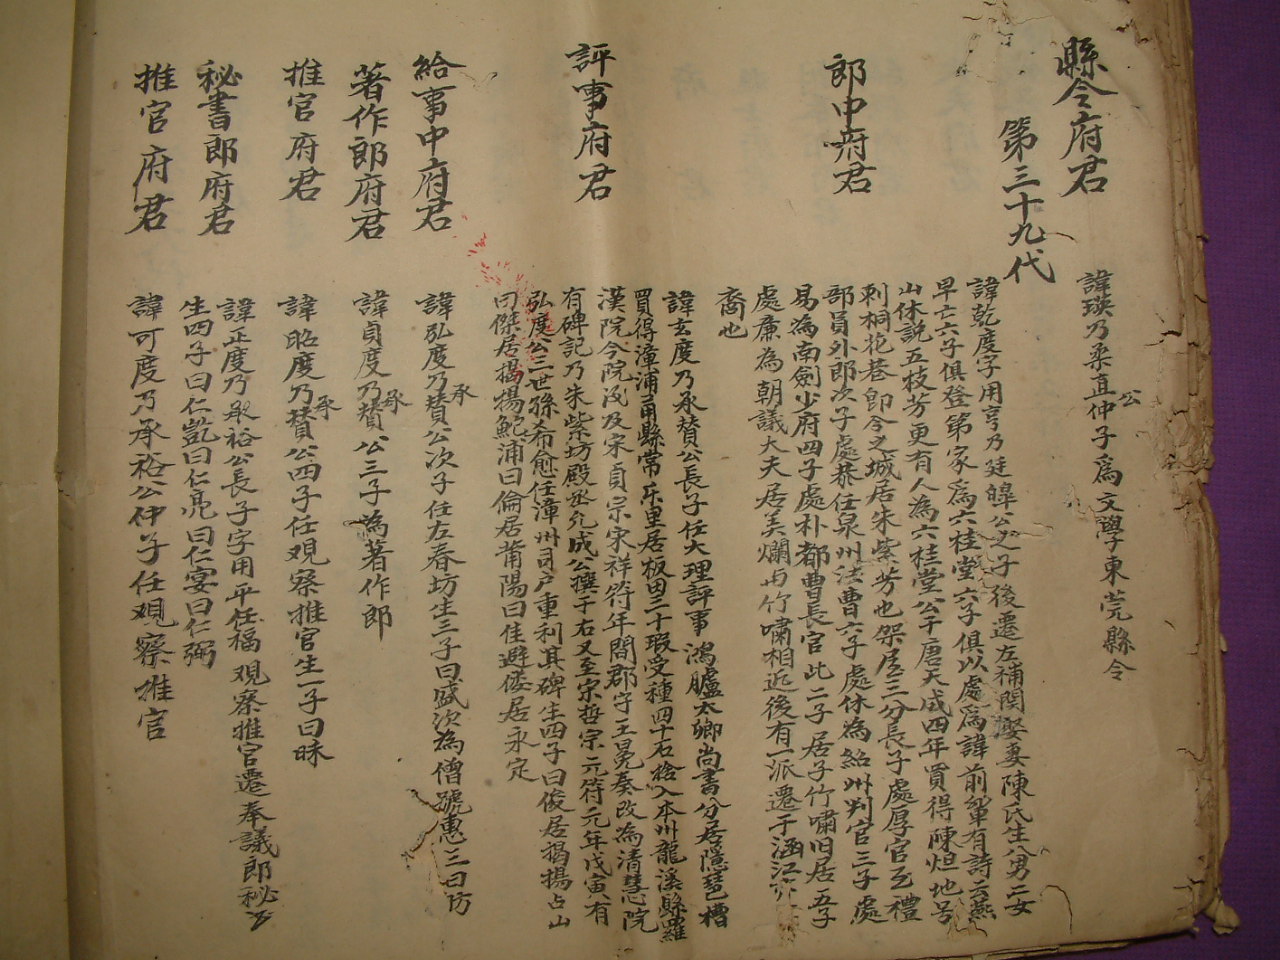 縣令府君
諱瑛乃柔直公仲子為文學東莞縣令
第三十九代
郎中府君
諱乾度字用亨乃廷皡公之子後遷左補闕娶妻陳氏生八男二女
早亡六子俱登第家為六桂堂六子俱以處為諱前輩有詩云燕
山休説五枝芳更有人為六桂堂公于唐天成四年買得陳炟地号
刺桐花巷即今之城居朱紫芳也架屋三分長子處厚官至禮
部員外郎次子處恭任泉州法曹六子處休為紹州判官三子處
易為南劍少府四子處朴都曹長官此二子居子竹嘯旧居五子
處廉為朝議大夫居美爛與竹嘯相近後有一派遷于涵江
裔也
評事府君
諱玄度乃承賛公長子任大理評事鴻臚太卿尚書分居隱琶槽
買得漳浦甬縣常乐里居板田三十瑕受種四十石捨入本州龍溪縣羅
漢院今院及宋貢宗宋祥符年間郡守王冕奏改為清慧院
有碑記乃朱紫坊殿丞允成公撰于右又至宋哲宗元符元年戊寅有
弘度公三世孫希愈任漳州司户重利其碑生四子曰俊居揭揚占山
曰傑居揚揚鮀浦曰倫居莆陽曰佳避倭居永定
給事中府君
諱弘度乃承賛公次子任左春坊生三子曰盛次為僧號惠三曰坊
著作郎府君
諱貞度乃承賛公三子為著作郎
推官府君
諱昭度乃承賛公四子任观察推官生一子曰昧
秘書郎府君
諱正度乃承裕公長子字用平任福观察推官遷奉議郎秘
生四子曰仁凱曰仁亮曰仁宴曰仁弼
推官府君
諱可度乃承裕公仲子任观察推官